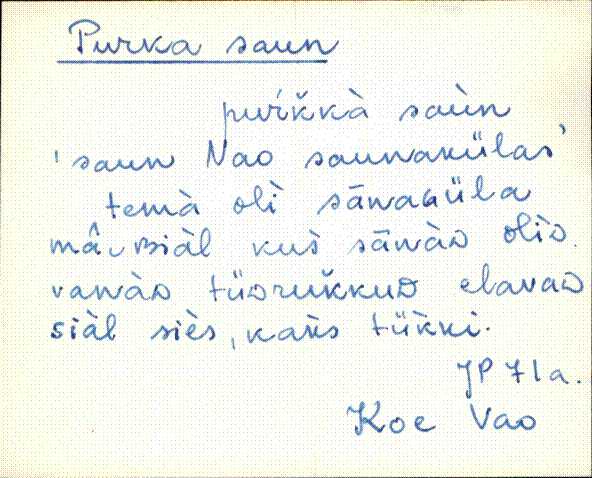 Purka saun
pur̀k̆kà saùn
'saun Vao saunakülas'
temà oli sä̀naɢüla
mâ, siàl kus̀ sä̀nàᴅ oliᴅ.
vanàᴅ tüᴅruk̆kuᴅ elavaᴅ
siàl siès, kak̀s tük̀ki.
JP 71a.
Koe Vao